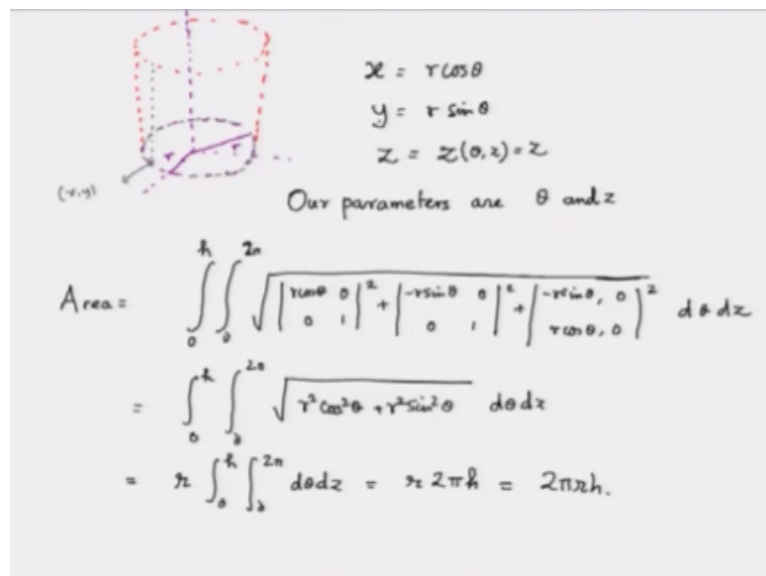 x = r cos θ
y = r sin θ
z = z(θ, z) = z
(x,y)
r r
Our parameters are θ and z
Area = ∫₀ʰ ∫₀²π √( |r cos θ 0; 0 1|² + |-r sin θ 0; 0 1|² + |-r sin θ, 0; r cos θ, 0|² ) dθ dz
= ∫₀ʰ ∫₀²π √( r² cos² θ + r² sin² θ ) dθ dz
= r ∫₀ʰ ∫₀²π dθ dz = r 2πh = 2πrh.